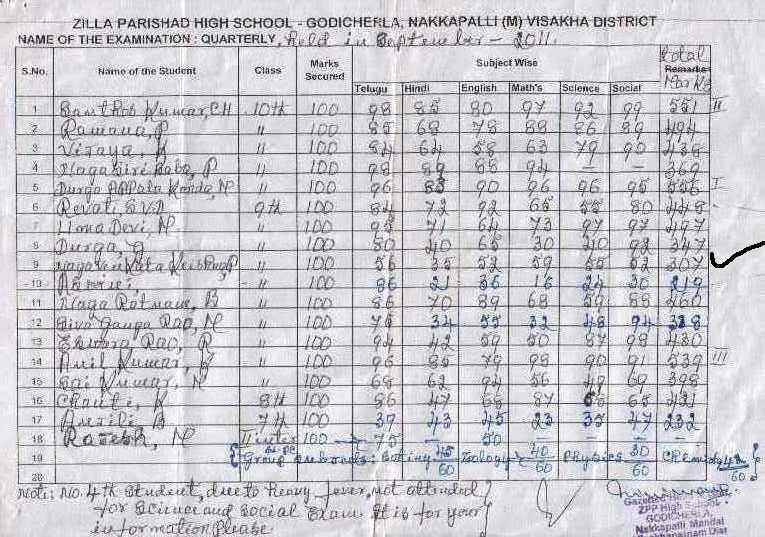 ZILLA PARISHAD HIGH SCHOOL - GODICHERLA, NAKKAPALLI (M) VISAKHA DISTRICT
NAME OF THE EXAMINATION : QUARTERLY, held in September - 2011.
S.No. Name of the Student Class Marks Secured Subject Wise Total Remarks Marks
Telugu Hindi English Math's Science Social
1 Kumar, CH 10th 100 98 85 80 97 92 99 551 II
2 Ramana, P " 100 85 68 78 88 86 89 494
3 Vijaya, " 100 84 64 58 63 79 90 438
4 Babu, P " 100 98 89 88 94 - - 369
5 Durga APPala Konda, N " 100 96 83 90 96 96 95 556 I
6 Revati 9th 100 84 72 92 65 55 80 448
7 Uma Devi, N. " 100 95 71 64 73 97 97 497
8 Durga, G " 100 80 40 65 30 40 92 347
9 P " 100 56 35 52 59 55 52 307
10 " 100 86 21 36 16 24 30 219
11 Naga Ratnam, B " 100 86 70 89 68 59 88 460
12 Siva Ganga Rao, N " 100 75 34 55 32 48 94 338
13 Eswara Rao, R " 100 94 42 59 50 87 98 430
14 Anil Kumar, " 100 96 85 79 98 90 91 539 III
15 Sai Kumar, N " 100 68 62 94 56 49 69 398
16 K 8th 100 86 47 66 87 65 431
17 Anjili, B 7th 100 39 43 45 23 35 47 232
18 Rajesh, N II inter 100 → 75 - 50 - - -
19 Bi.P.C Group : Botiny 45/60 Zoology 40/60 Physics 30/60 Chemistry 60
20
Note: No. 4th Student, due to heavy fever, not attended
for Science and Social Exam. It is for your
information Please
ZPP High School
GODICHERLA,
Nakkapalli Mandal